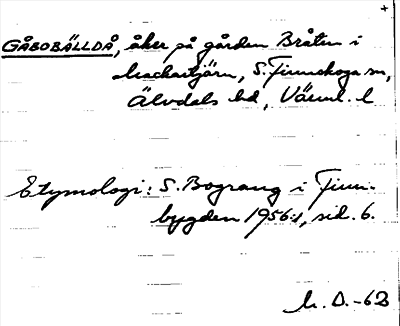 +
GÅBOBÄLLDÅ, åker på gården Bråten i
Machartjärn, S. Finnskoga sn,
Älvdals hd, Värml. l
Etymologi: S. Bograng i Finn-
bygden 1956:1, sid. 6.
M. D. -62